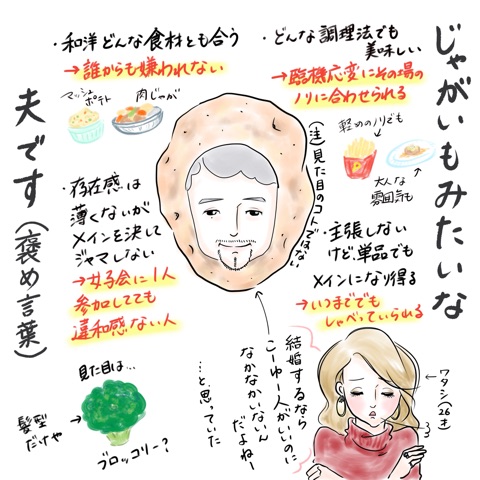 じゃがいもみたいな
夫です(褒め言葉)
・和洋どんな食材とも合う
→誰からも嫌われない
マッシュ
ポテト
肉じゃが
・どんな調理法でも
美味しい
→臨機応変にその場の
ノリに合わせられる
軽めのノリでも
大人な
雰囲気も
(注)見た目のコトではない
・存在感は
薄くないが
メインを決して
ジャマしない
→女子会に1人
参加してても
違和感ない人
・主張しない
けど、単品でも
メインになり得る
→いつまででも
しゃべっていられる
見た目は…
髪型
だけや
ブロッコリー?
結婚するなら
こーゆー人がいいのに
なかなかいないん
だよねー
…と思っていた
ワタシ(26才)